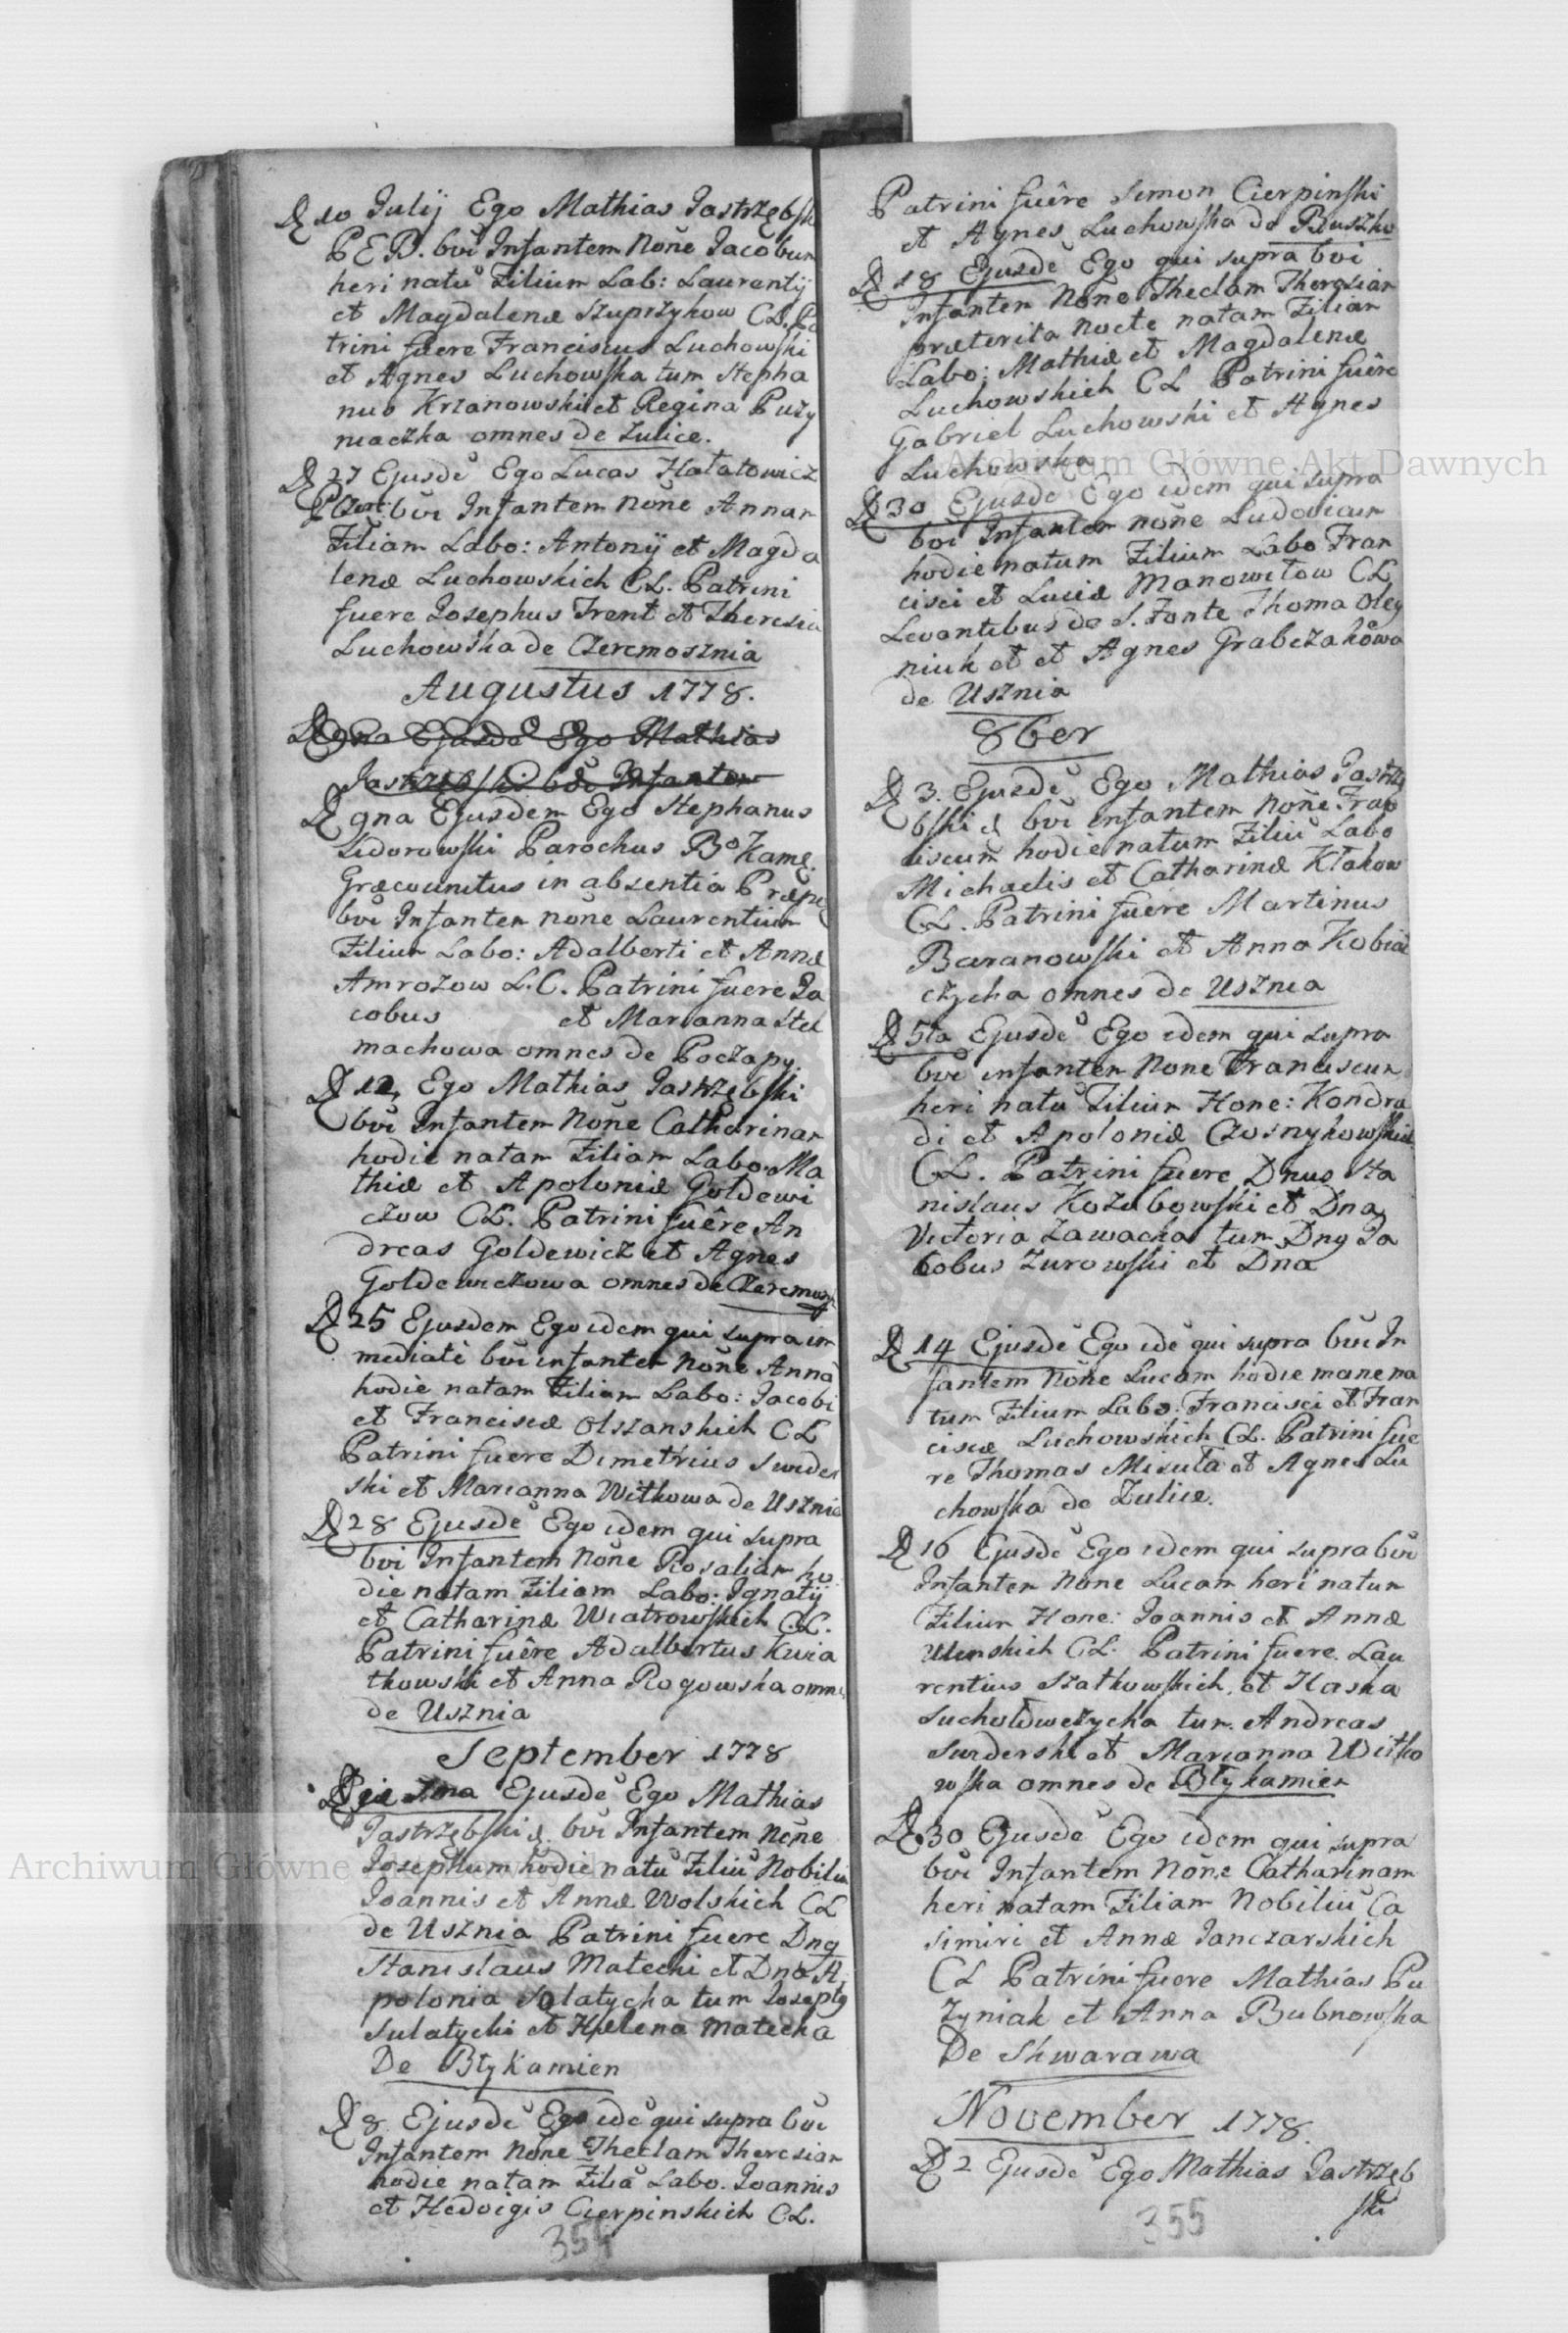 D 10 Julij Ego Mathias Jastrzębski
P E B. bvi Infantem None Jacobum
heri natu Filium Lab: Laurentij
et Magdalenæ Szuprzykow CL. Pa
trini fuere Franciscus Luchowski
et Agnes Luchowska tum Stepha
nus Krzanowski et Regina Puzy
niaczka omnes de Zulice.
D 27 Ejusde Ego Lucas Hałatowicz
bvi Infantem None Annam
Filiam Labo: Antonij et Magda
lenæ Luchowskich CL. Patrini
fuere Josephus Trent et Theresia
Luchowska de Czeremosznia
Augustus 1778.
D 9na Ejusde Ego Mathias
Jastrzębski bvi Infantem
D 9na Ejusdem Ego Stephanus
Sidorowski Parochus Bo Kame
Græcounitus in absentia Præpti
bvi Infantem none Laurentium
Filium Labo: Adalberti et Annæ
Amrozow L.C. Patrini fuere Ja
cobus et Marianna Stel
machowa omnes de Poczapy.
D 12, Ego Mathias Jastrzębski
bvi Infantem None Catharinam
hodie natam Filiam Labo: Ma
thiæ et Apoloniæ Goldewi
czow CL. Patrini fuêre An
dreas Goldewicz et Agnes
Goldewiczowa omnes de Czeremosz
D 25 Ejusdem Ego idem qui supra im
mediatè bvi infantem None Anna
hodie natam Filiam Labo: Jacobi
et Franciscæ Olszanskich CL
Patrini fuere Dimetrius Swider
ski et Marianna Witkowa de Usznia
D 28 Ejusde Ego idem qui supra
bvi Infantem None Rosaliam ho
die natam Filiam Labo: Ignatij
et Catharinæ Wiatrowskich C.L.
Patrini fuêre Adalbertus Kwia
tkowski et Anna Rogowska omnes
de Usznia
September 1778
Die 1ma Ejusde Ego Mathias
Jastrzębski bvi Infantem None
Josephum hodie natu Filiu Nobiliu
Joannis et Annæ Wolskich CL
de Usznia Patrini fuere Dnq
Stanislaus Matecki et Dna A
polonia Sulatycka tum Joseph9
Sulatycki et Helena Matecka
De Błykamien
D 8 Ejusde Ego ide qui supra bvi
Infantem None Theclam Theresiam
hodie natam Filia Labo. Joannis
et Hedvigis Cierpinskich CL.
354
Patrini fuêre Simon Cierpinski
et Agnes Luchowska de Buszko
D 18 Ejusde Ego qui supra bvi
Infantem None Theclam Theresiam
præterita nocte natam Filiam
Labo: Mathiæ et Magdalenæ
Luchowskich CL Patrini fuêre
Gabriel Luchowski et Agnes
Luchowska
D 30 Ejusde Ego idem qui supra
bvi Infantem none Ludovicum
hodie natum Filium Labo Fran
cisci et Luciæ Manowitow CL
Levantibus de S. Fonte Thoma Oley
niuk et et Agnes Grabczakowa
de Usznia
8ber
D 3. Ejusde Ego Mathias Jastrzę
bski bvi infantem None Fran
ciscum hodie natum Filiu Labo
Michaelis et Catharinæ Kłakow
CL. Patrini fuere Martinus
Baranowski et Anna Kobiał
czycha omnes de Usznia
D 5ta Ejusde Ego idem qui supra
bvi infantem None Franciscum
heri natu Filium Hone: Kondra
di et Apoloniæ Czosnykowskich
CL. Patrini fuere Dnus Sta
nislaus Kozubowski et Dna
Victoria Zawacka tum Dnq Ja
cobus Zurowski et Dna
D 14 Ejusde Ego ide qui supra bvi In
fantem None Lucam hodie mane na
tum Filium Labo: Francisci et Fran
ciscæ Luchowskich CL. Patrini fue
re Thomas Misuta et Agnes Lu
chowska de Zulice.
D 16 Ejusde Ego idem qui supra bvi
Infantem None Lucam heri natum
Filium Hone: Joannis et Annæ
Ulinskich CL. Patrini fuere. Lau
rentius Szatkowskich, et Kaska
Sucholdwczycha tum. Andreas
Swiderski et Marianna Witko
wska omnes de Błykamien
D 30 Ejusde Ego idem qui supra
bvi Infantem None Catharinam
heri natam Filiam Nobiliu Ca
simiri et Annæ Janczarskich
CL Patrini fuere Mathias Pu
zyniak et Anna Bubnowska
De Skwarawa
November 1778.
D 2 Ejusde Ego Mathias Jastrzęb
ski
355
Archiwum Główne Akt Dawnych
Archiwum Główne